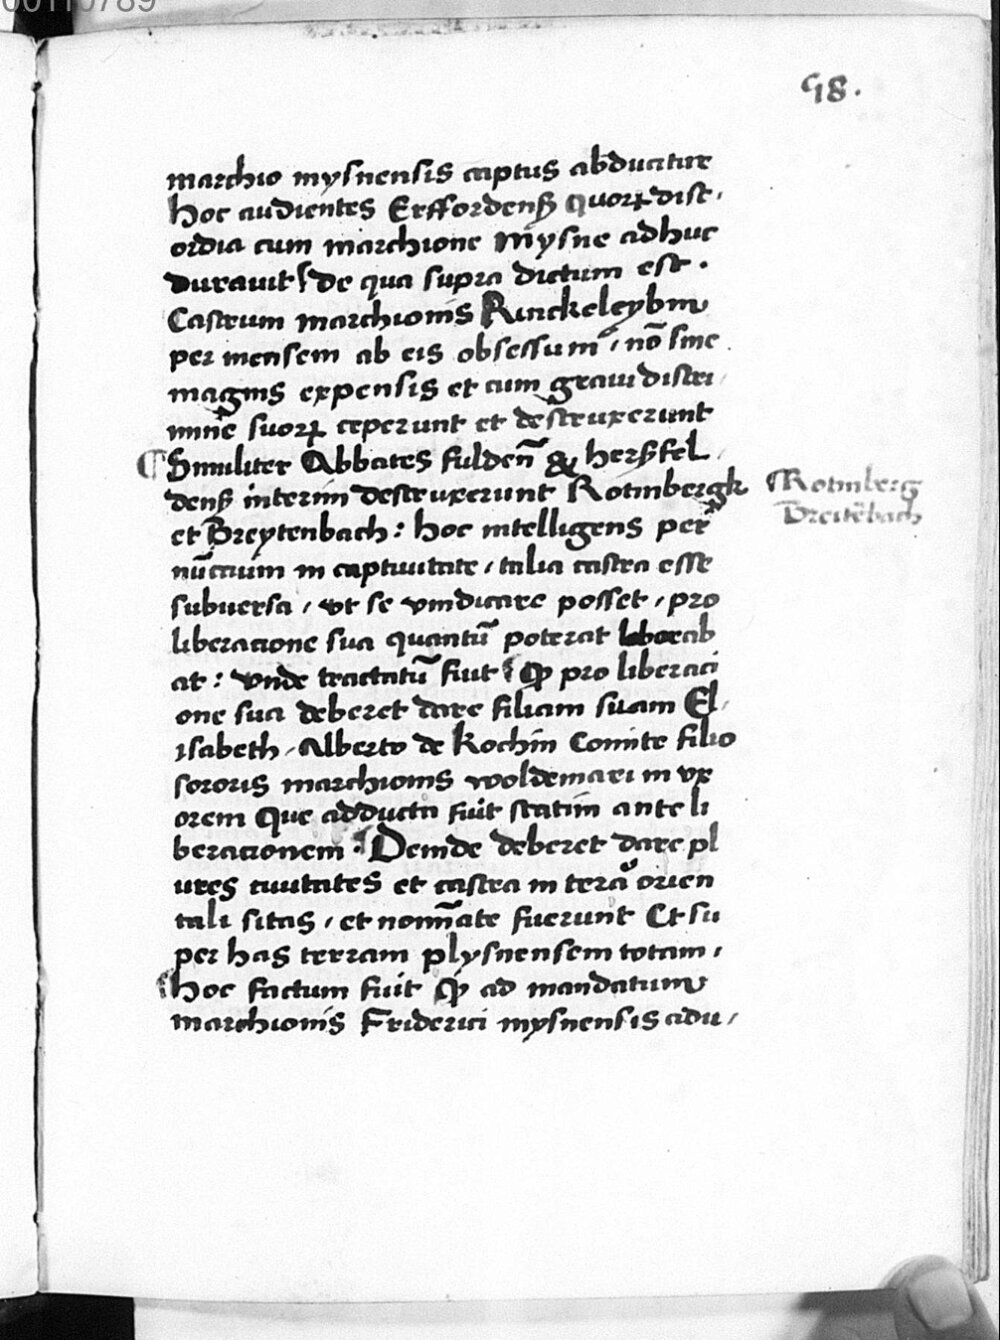 00110789
58.
marchio mysnensis captus abducitur
hoc audientes Erffordenß quoꝝ disc,
ordia cum marchione Mysne adhuc
durauit de qua supra dictum est .
Castrum marchionis Rinckeleybin
per mensem ab eis obsessum , nō sine
magnis expensis et cum graui discri,
mine suoꝝ ceperunt et destruxerunt
¶ Similiter Abbates fulden̄ & herßfel,
denß interim destruxerunt Rotinbergk
et Breytenbach : hoc intelligens per
nūcium in captiuitate , talia castra esse
subuersa , vt se vindicare posset , pro
liberacione sua quantū poterat laborab
at : vnde tractatū fuit ꝙ pro liberaci
one sua deberet dare filiam suam El,
isabeth , Alberto de Kochin Comite filio
sororis marchionis woldemari in vx
orem Que adducta fuit statim ante li
beracionem . Deinde deberet dare pl
ures ciuitates et castra in tera orien
tali sitas , et nomīate fuerunt Et su
per has terram plysnensem totam ,
hoc factum fuit ꝙ ad mandatum
marchionis Friderici mysnensis adu,
Rotinberg
Breitēbach